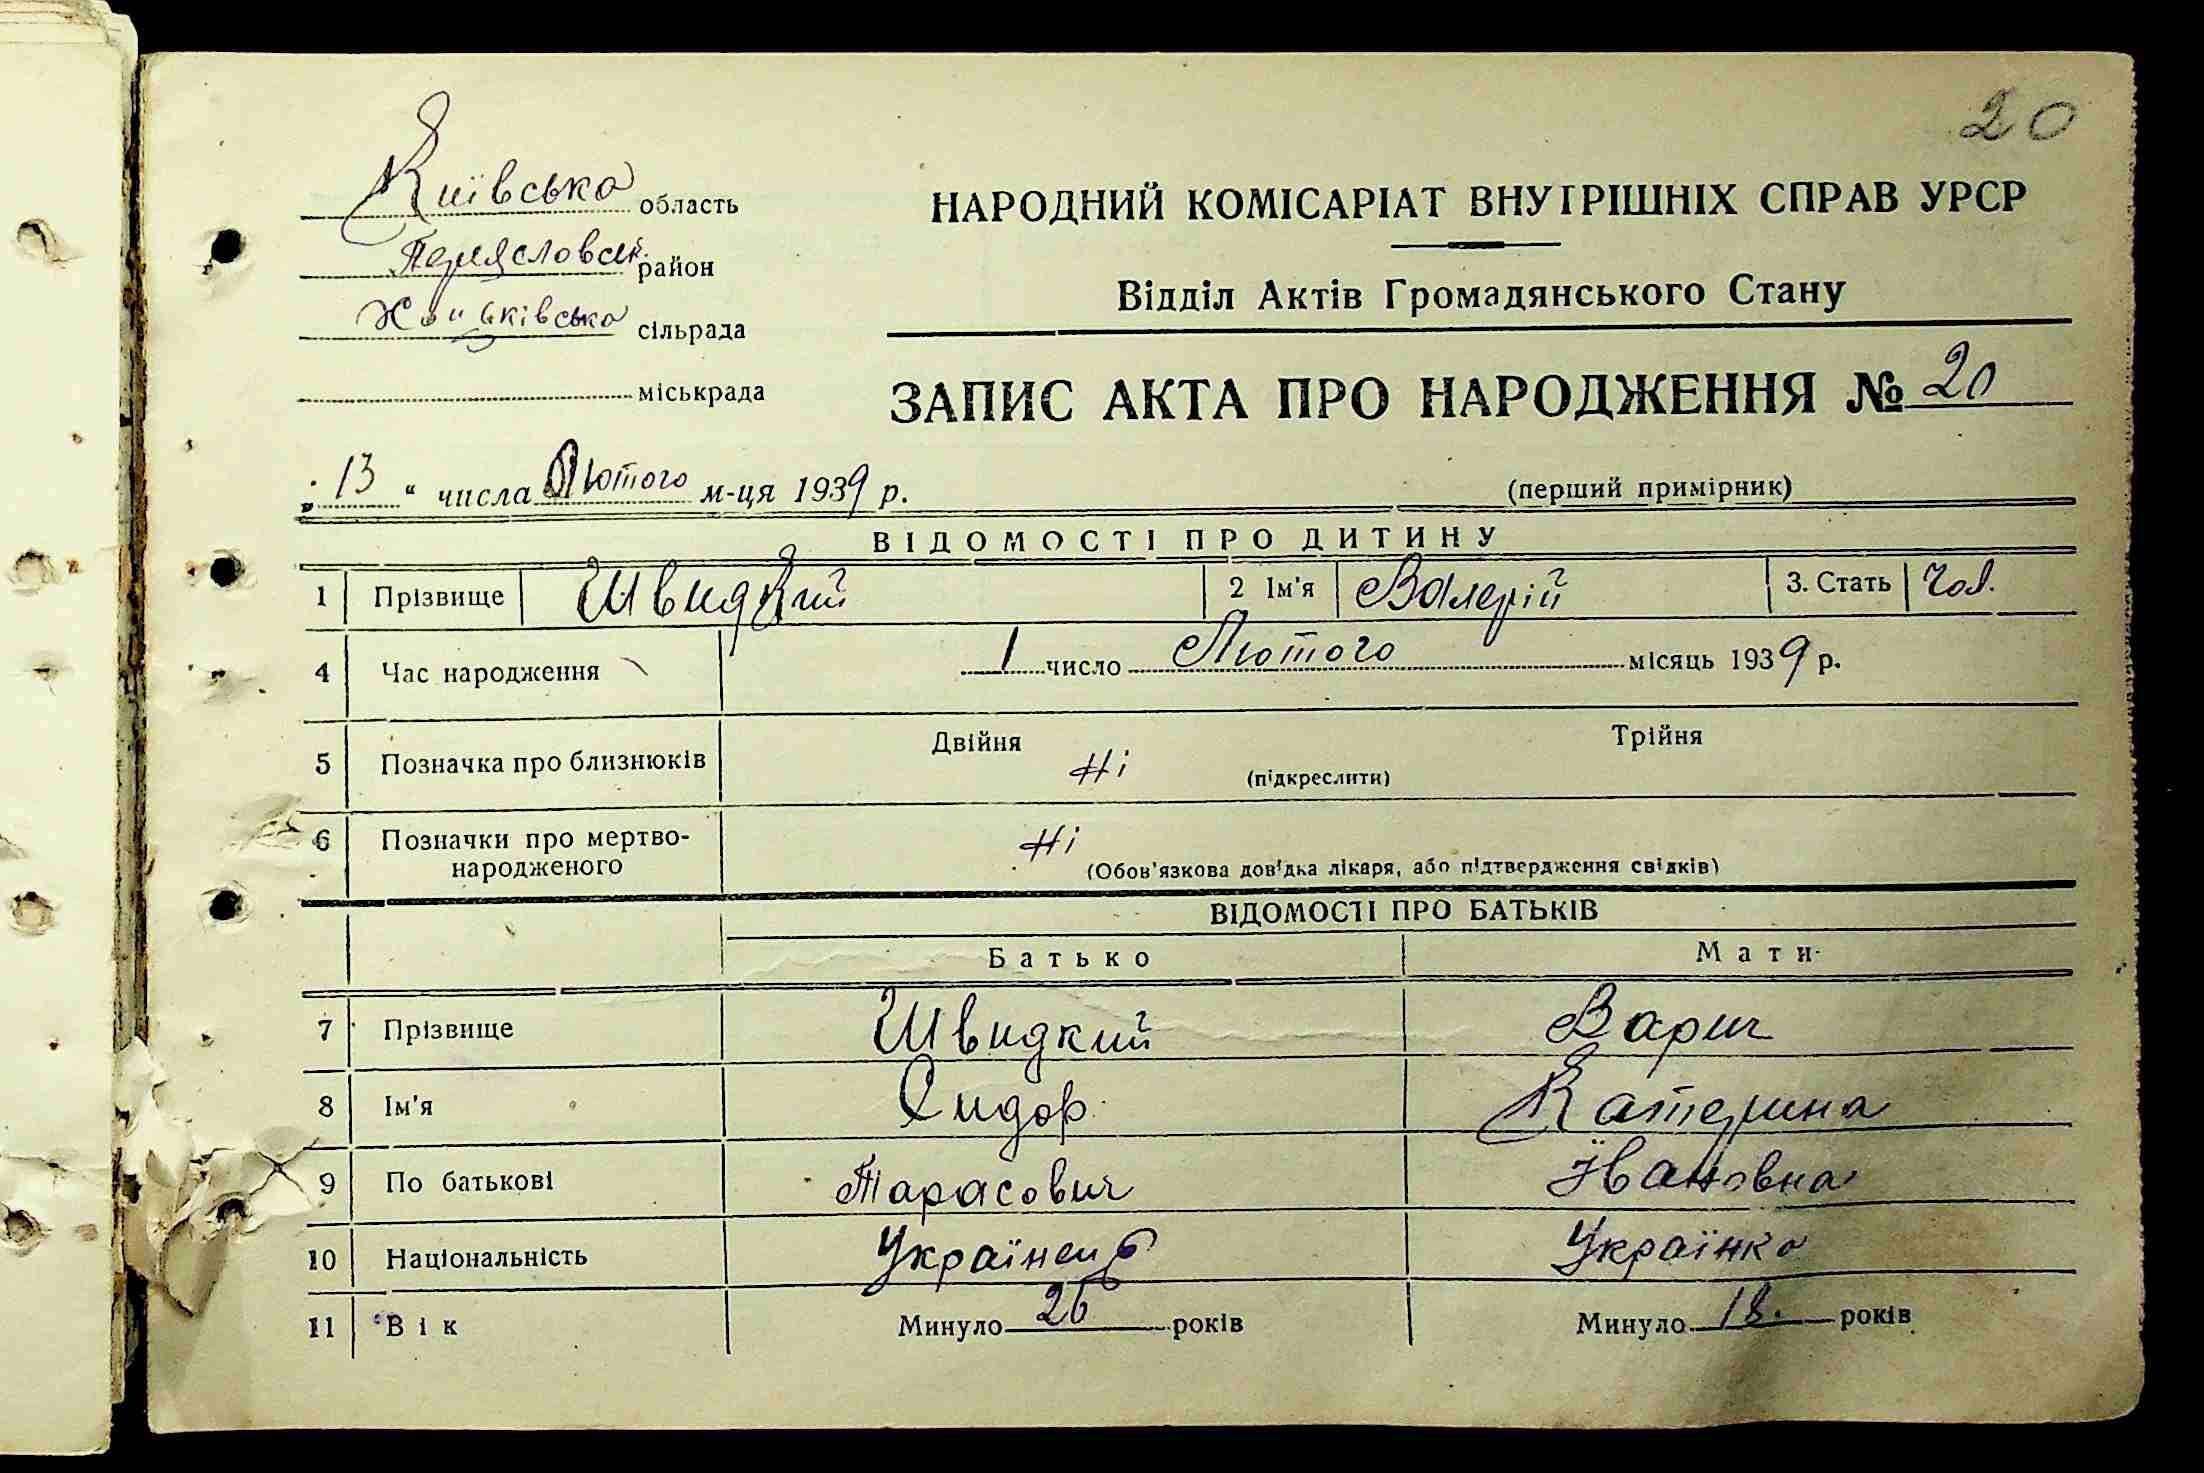 20
Київська область
Переяславськ. район
сільрада
міськрада
НАРОДНИЙ КОМІСАРІАТ ВНУТРІШНІХ СПРАВ УРСР
Відділ Актів Громадянського Стану
ЗАПИС АКТА ПРО НАРОДЖЕННЯ № 20
„13“ числа Лютого м-ця 1939 р.
(перший примірник)
ВІДОМОСТІ ПРО ДИТИНУ
1 Прізвище Швидкий 2 Ім'я Валерій 3. Стать Чол.
4 Час народження 1 число Лютого місяць 1939 р.
5 Позначка про близнюків Двійня Ні (підкреслити) Трійня
6 Позначки про мертво-
народженого Ні (Обов'язкова довідка лікаря, або підтвердження свідків)
ВІДОМОСТІ ПРО БАТЬКІВ
Батько Мати
7 Прізвище Швидкий Варич
8 Ім'я Сидор Катерина
9 По батькові Тарасович Івановна
10 Національність Українець Українка
11 Вік Минуло 26 років Минуло 18. років